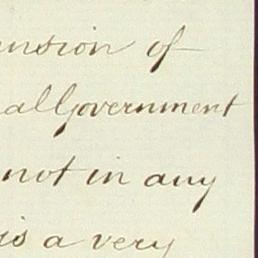 ension of
al Government
not in any
is a very